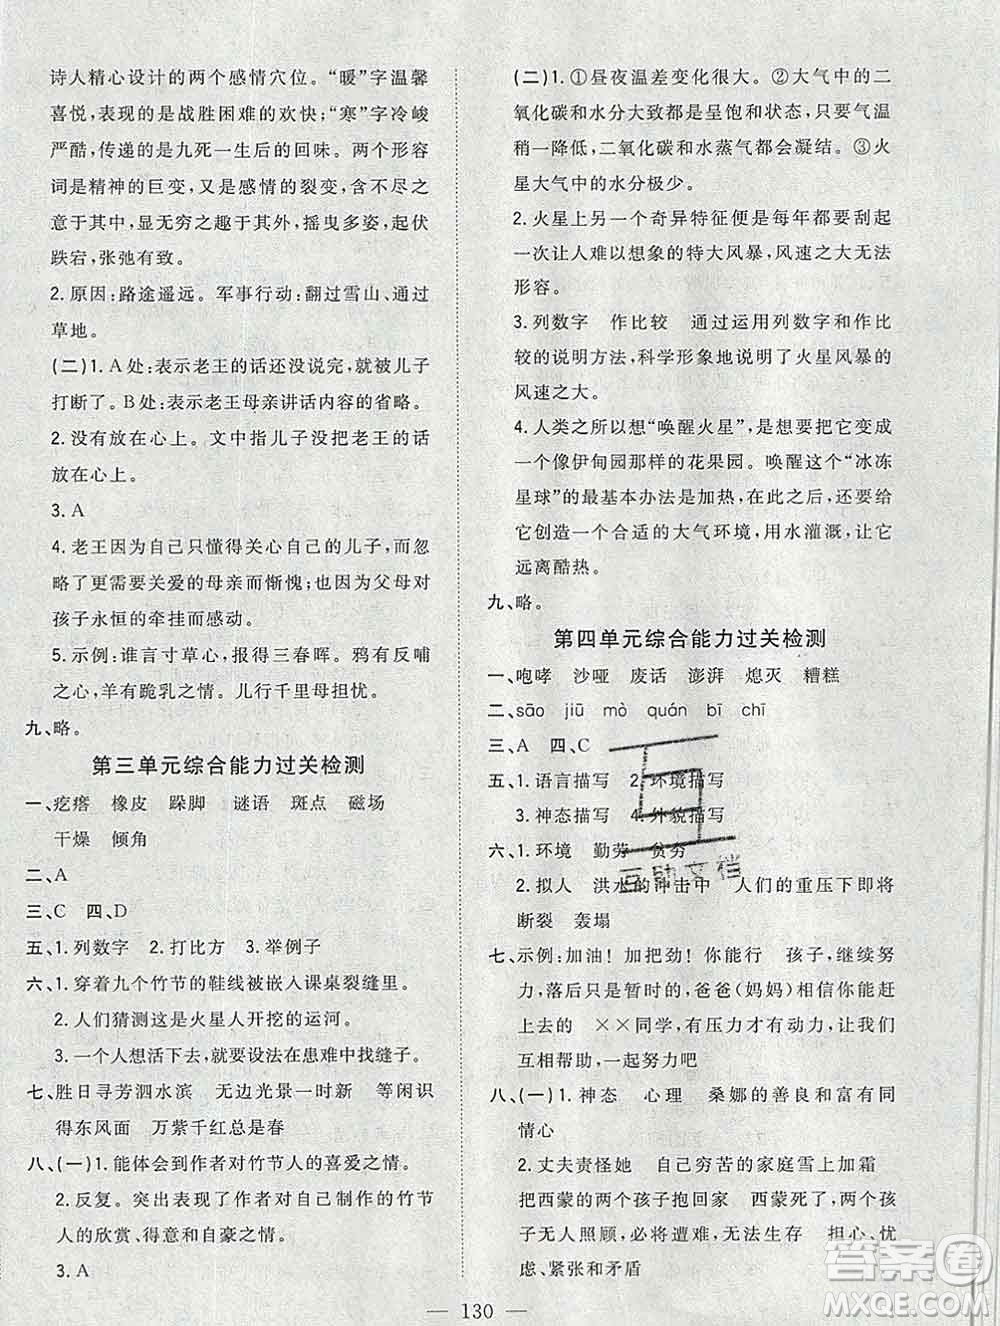 诗人精心设计的两个感情穴位。“暖”字温馨
喜悦，表现的是战胜困难的欢快；“寒”字冷峻
严酷，传递的是九死一生后的回味。两个形容
词是精神的巨变，是感情的裂变，含不尽之
意于其中，显无穷之趣于其外，摇曳多姿，起伏
跌宕，张弛有致。
2. 原因：路途遥远。军事行动：翻过雪山、走过
草地。
（二）1. A 处：表示老王的话还没说完，就被儿子
打断了。B 处：表示老王母亲讲话内容的省略。
2. 没有放在心上。文中指儿子没把老王的话
放在心上。
3. A
4. 老王因为自己只懂得关心自己的儿子，而忽
略了更需要关爱的母亲而惭愧；因为父母对
孩子永恒的牵挂而感动。
5. 示例：谁言寸草心，报得三春晖。鸦有反哺
之心，羊有跪乳之情。儿行千里母担忧。
九、略。
第三单元综合能力过关检测
一、疙瘩　橡皮　跺脚　谜语　斑点　磁场
干燥　倾角
二、A
三、C　四、D
五、1. 列数字　2. 打比方　3. 举例子
六、1. 穿着九个竹节的鞋线被嵌入课桌裂缝里。
2. 人们猜测这是火星人开挖的运河。
3. 一个人想活下去，就要设法在患难中找缝子。
七、胜日寻芳泗水滨　无边光景一时新　等闲识
得东风面　万紫千红总是春
八、（一）1. 能体会到作者对竹节人的喜爱之情。
2. 反复。突出表现了作者对自己制作的竹节
人的欣赏、得意和自豪之情。
3. A
（二）1. ①昼夜温差变化很大。②大气中的二
氧化碳和水分大致都是呈饱和状态，只要气温
稍一降低，二氧化碳和水蒸气都会凝结。③火
星大气中的水分极少。
2. 火星上另一个奇异特征便是每年都要刮起
一次让人难以想象的特大风暴，风速之大无法
形容。
3. 列数字　作比较　通过运用列数字和作比
较的说明方法，科学形象地说明了火星风暴的
风速之大。
4. 人类之所以想“唤醒火星”，是想把它变成
一个像伊甸园那样的花果园。唤醒这个“冰冻
星球”的最基本办法是加热，但是，还要给
它创造一个合适的大气环境，用水灌溉，让它
远离酷热。
九、略。
第四单元综合能力过关检测
一、咆哮　沙哑　废话　澎湃　熄灭　糟糕
二、sāo　jiū　mò　quán　bī　chī
三、A　四、C
五、1. 语言描写　2. 环境描写
3. 神态描写　4. 外貌描写
六、1. 环境　勤劳　贫穷
2. 拟人　洪水的冲击中　人们的重压下即将
断裂　轰塌
七、示例：加油！加把劲！你能行　孩子，继续努
力，落后只是暂时的，爸爸（妈妈）相信你能赶
上去的　××同学，有压力才有动力，让我们
互相帮助，一起努力吧
八、（一）1. 神态　心理　桑娜的善良和富有同
情心
2. 丈夫责怪她　自己穷苦的家庭雪上加霜
把西蒙的两个孩子抱回家　西蒙死了，两个孩
子无人照顾，必将遭难，无法生存　担心、忧
虑、紧张和矛盾
互助文档
130
答案圈
MXQE.COM